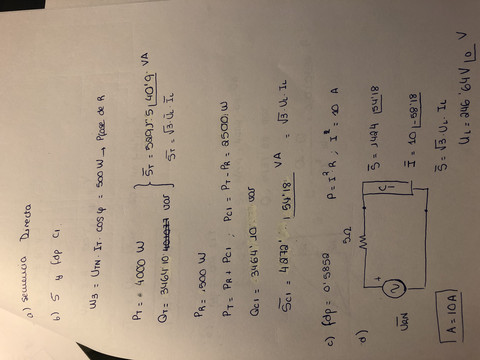 a) secuencia Directa
b) S y fdp C1.
W3 = UTN IT. cos φ = 500W → Pfase de R
PT = 4000 W
QT = 3464'10 var
S̄T = 5291'5 |40'9° VA
S̄T = √3 ŪL ĪL
PR = 1500 W
PT = PR + PC1 ; PC1 = PT - PR = 2500 W
QC1 = 3464'10 var
S̄C1 = 4272' |54'18° VA = √3 UL IL
c) fdp = 0'5852
P = I² R ; I = 10 A
d)
5Ω
C1
+
ŪRN
S̄ = 1424 |54'18
Ī = 10 |-58'18
S̄ = √3 · UL · IL
A = 10A
UL = 246'64V |0 V